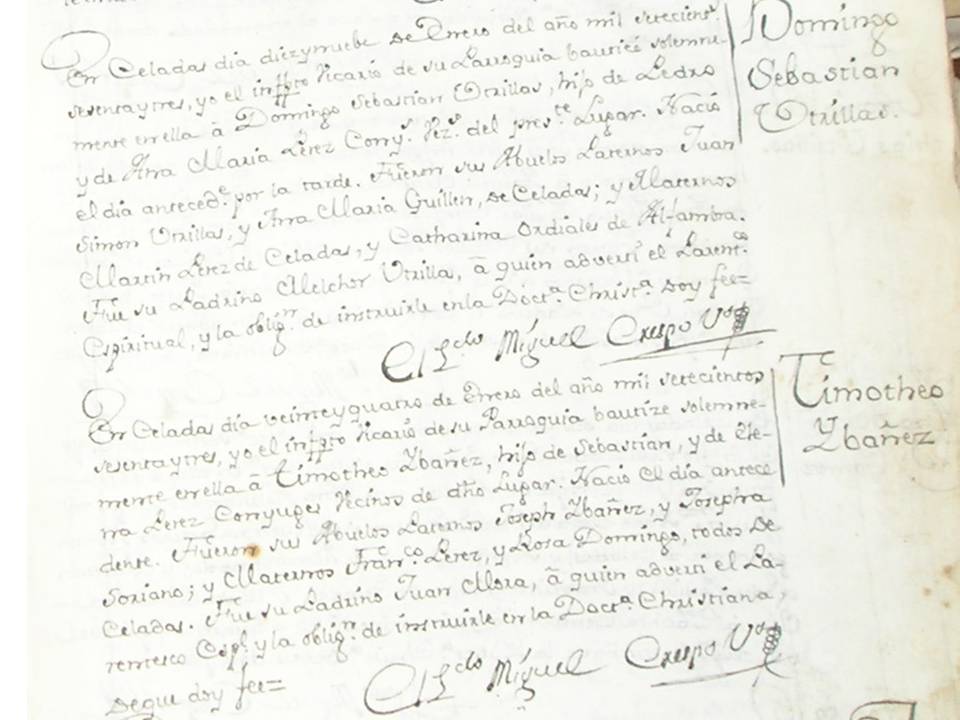 Domingo
Sebastian
Utrillas.
En Celadas dia diezynuebe de Enero del año mil setecient.s
sesentaytres, yo el infpto Vicario de su Parroquia bautizé solemne-
mente en ella â Domingo Sebastian Utrillas, hijo de Pedro
y de Ana Maria Perez Cony.s Vez.s del pres.te Lugar. Nació
el dia anteced.e por la tarde. Fueron sus Abuelos Paternos Juan
Simon Utrillas, y Ana Maria Guillen, de Celadas; y Maternos
Martin Perez de Celadas, y Catharina Ordiales de Alfambra.
Fue su Padrino Melchor Utrilla, â quien advertí el Parent.co
Espiritual, y la oblig.n de instruirle en la Doct.a Christ.a Doy fee=
El L.cdo Miguel Crespo V.o
Timotheo
Ybañez
En Celadas dia veinteyquatro de Enero del año mil setecientos
sesentaytres, yo el infpto Vicario de su Parroquia bautize solemne-
mente en ella â Timotheo Ybañez, hijo de Sebastian, y de Ele-
na Perez Conyuges Vecinos de dho Lugar. Nació el dia antece
dente. Fueron sus Abuelos Paternos Joseph Ybañez, y Josepha
Soriano; y Maternos Fran.co Perez, y Rosa Domingo, todos de
Celadas. Fue su Padrino Juan Mora, â quien advertí el Pa-
rentesco Esp.l y la oblig.n de instruirle en la Doct.a Christiana,
de que doy fee=
El L.cdo Miguel Crespo V.o